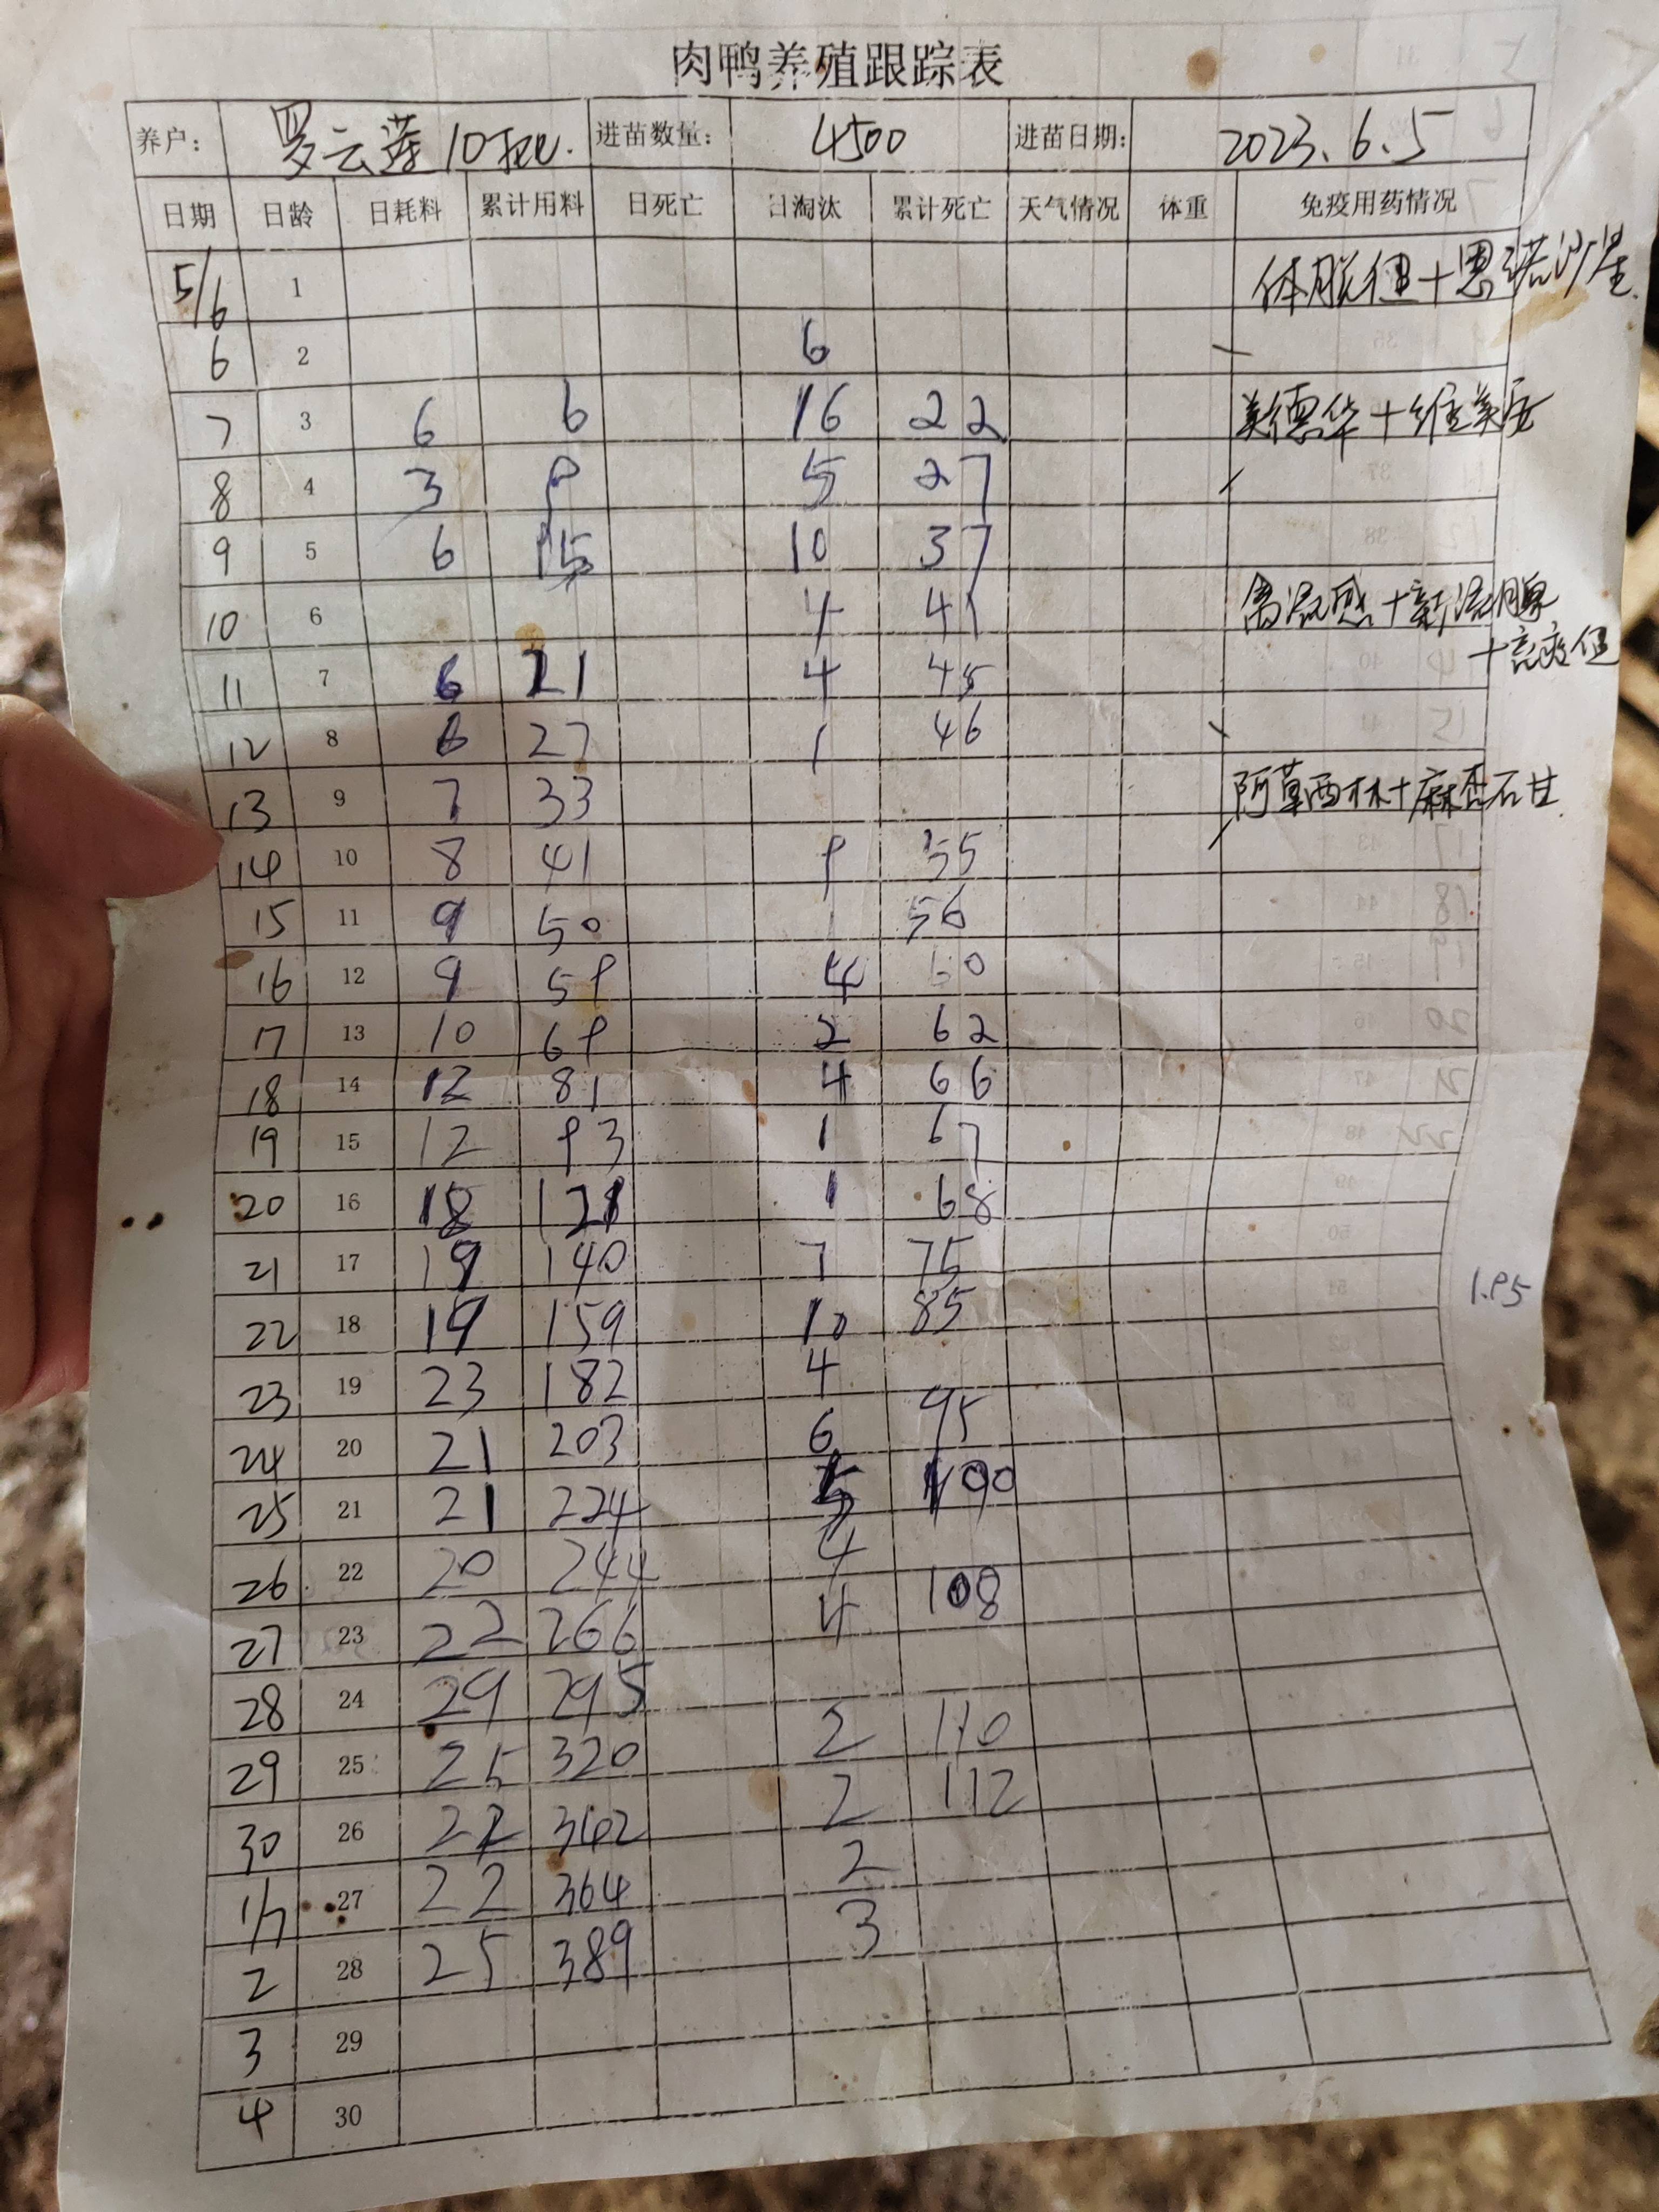 肉鸭养殖跟踪表
养户: 罗云莲 10批. 进苗数量: 4500 进苗日期: 2023.6.5
日期 日龄 日耗料 累计用料 日死亡 日淘汰 累计死亡 天气情况 体重 免疫用药情况
5/6 1 体肽健+恩诺沙星.
6 2 6
7 3 6 6 16 22 美德华+维美安
8 4 3 9 5 27
9 5 6 15 10 37
10 6 4 41 禽流感+新流腺
+高疫健
11 7 6 21 4 45
12 8 6 27 1 46
13 9 7 33 阿莫西林+麻杏石甘.
14 10 8 41 9 55
15 11 9 50 1 56
16 12 9 59 4 60
17 13 10 69 2 62
18 14 12 81 4 66
19 15 12 93 1 67
20 16 18 121 1 68
21 17 19 140 7 75
22 18 19 159 10 85 1.95
23 19 23 182 4
24 20 21 203 6 95
25 21 21 224 5 100
26 22 20 244 4
27 23 22 266 4 108
28 24 29 295
29 25 25 320 2 110
30 26 22 342 2 112
1/7 27 22 364 2
2 28 25 389 3
3 29
4 30